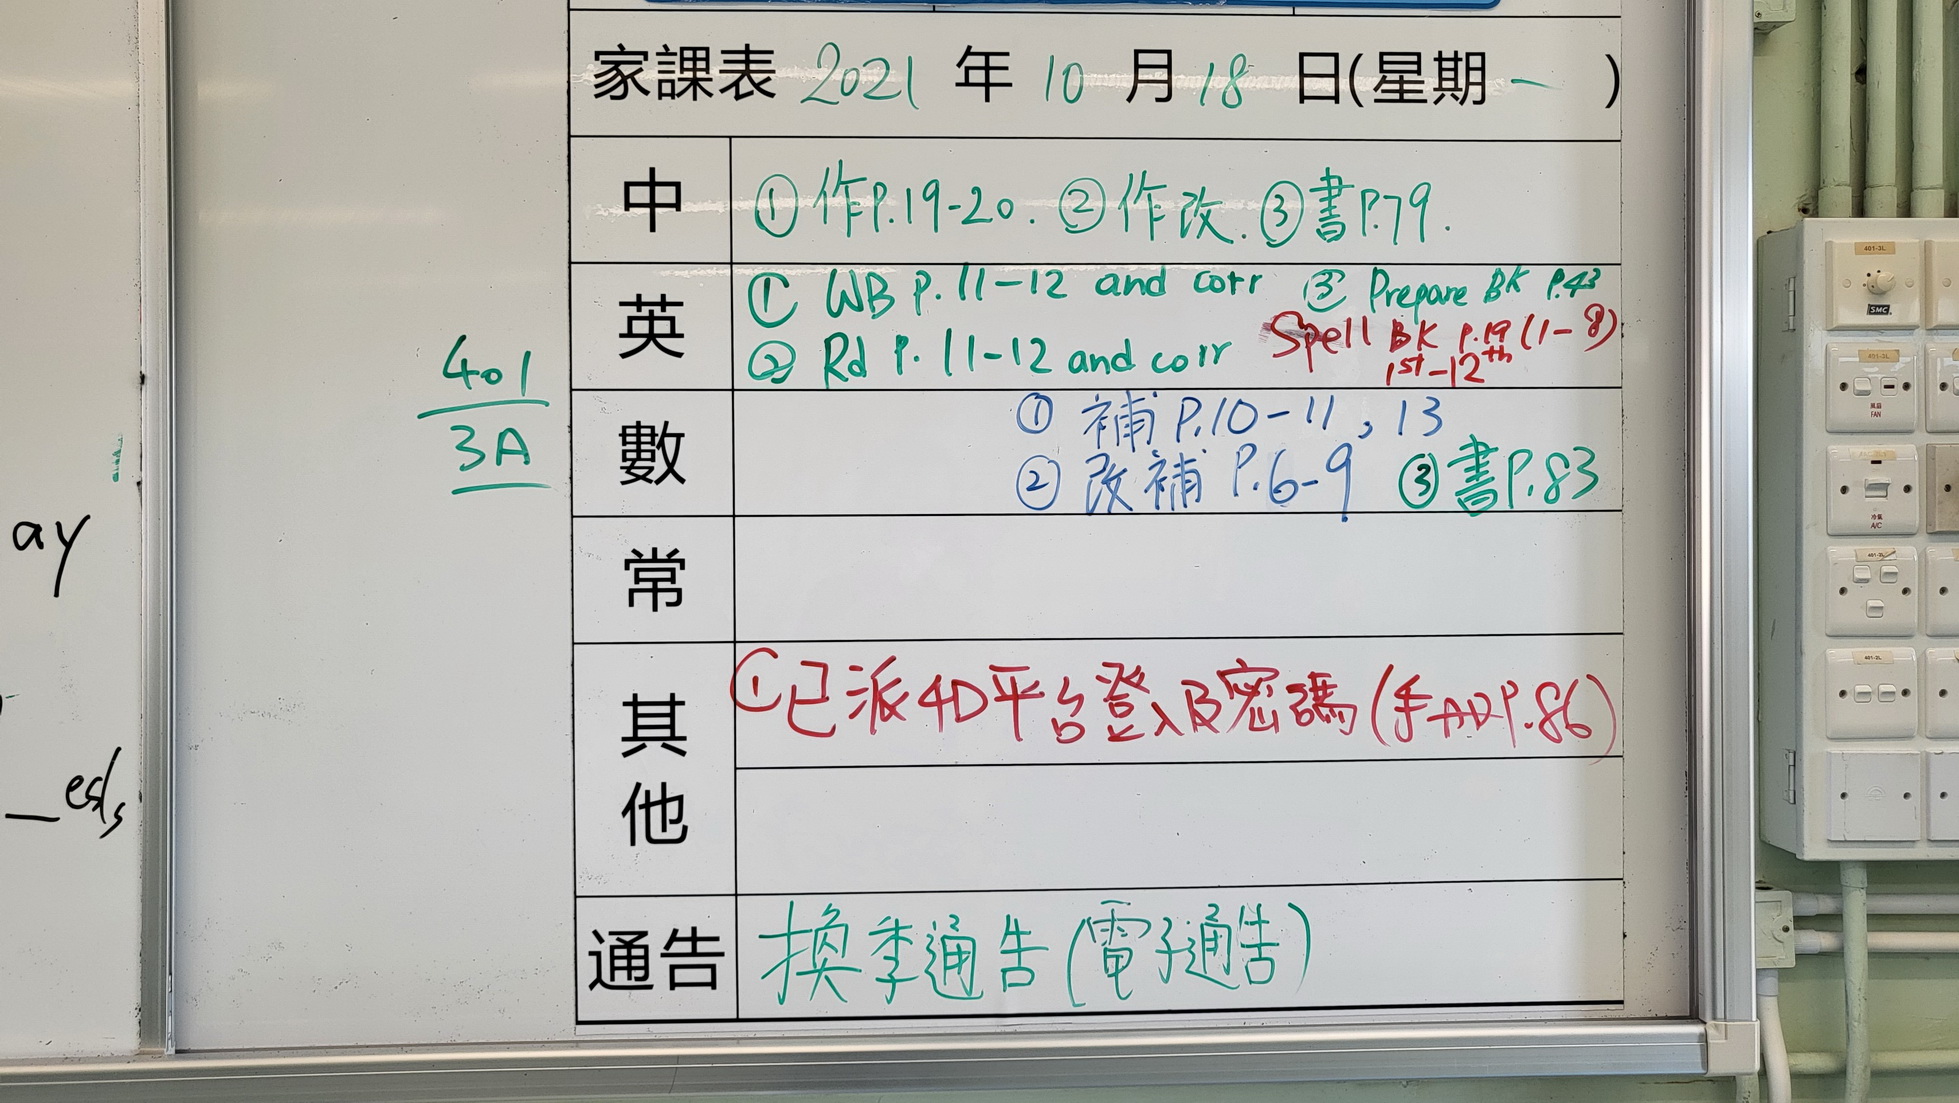 家課表 2021 年 10 月 18 日(星期一)
中
①作P.19-20. ②作改. ③書P.79.
英
① WB P.11-12 and corr ③ Prepare BK P.43
② Rd P.11-12 and corr Spell BK P.19 (1-8)
1st-12th
401
3A
數
① 補 P.10-11, 13
② 改補 P.6-9 ③書P.83
常
其他
①已派4D平台登入及密碼(手冊P.86)
通告
換季通告(電子通告)
ay
_eds
401-3L
SMC
風扇
FAN
冷氣
A/C
401-2L